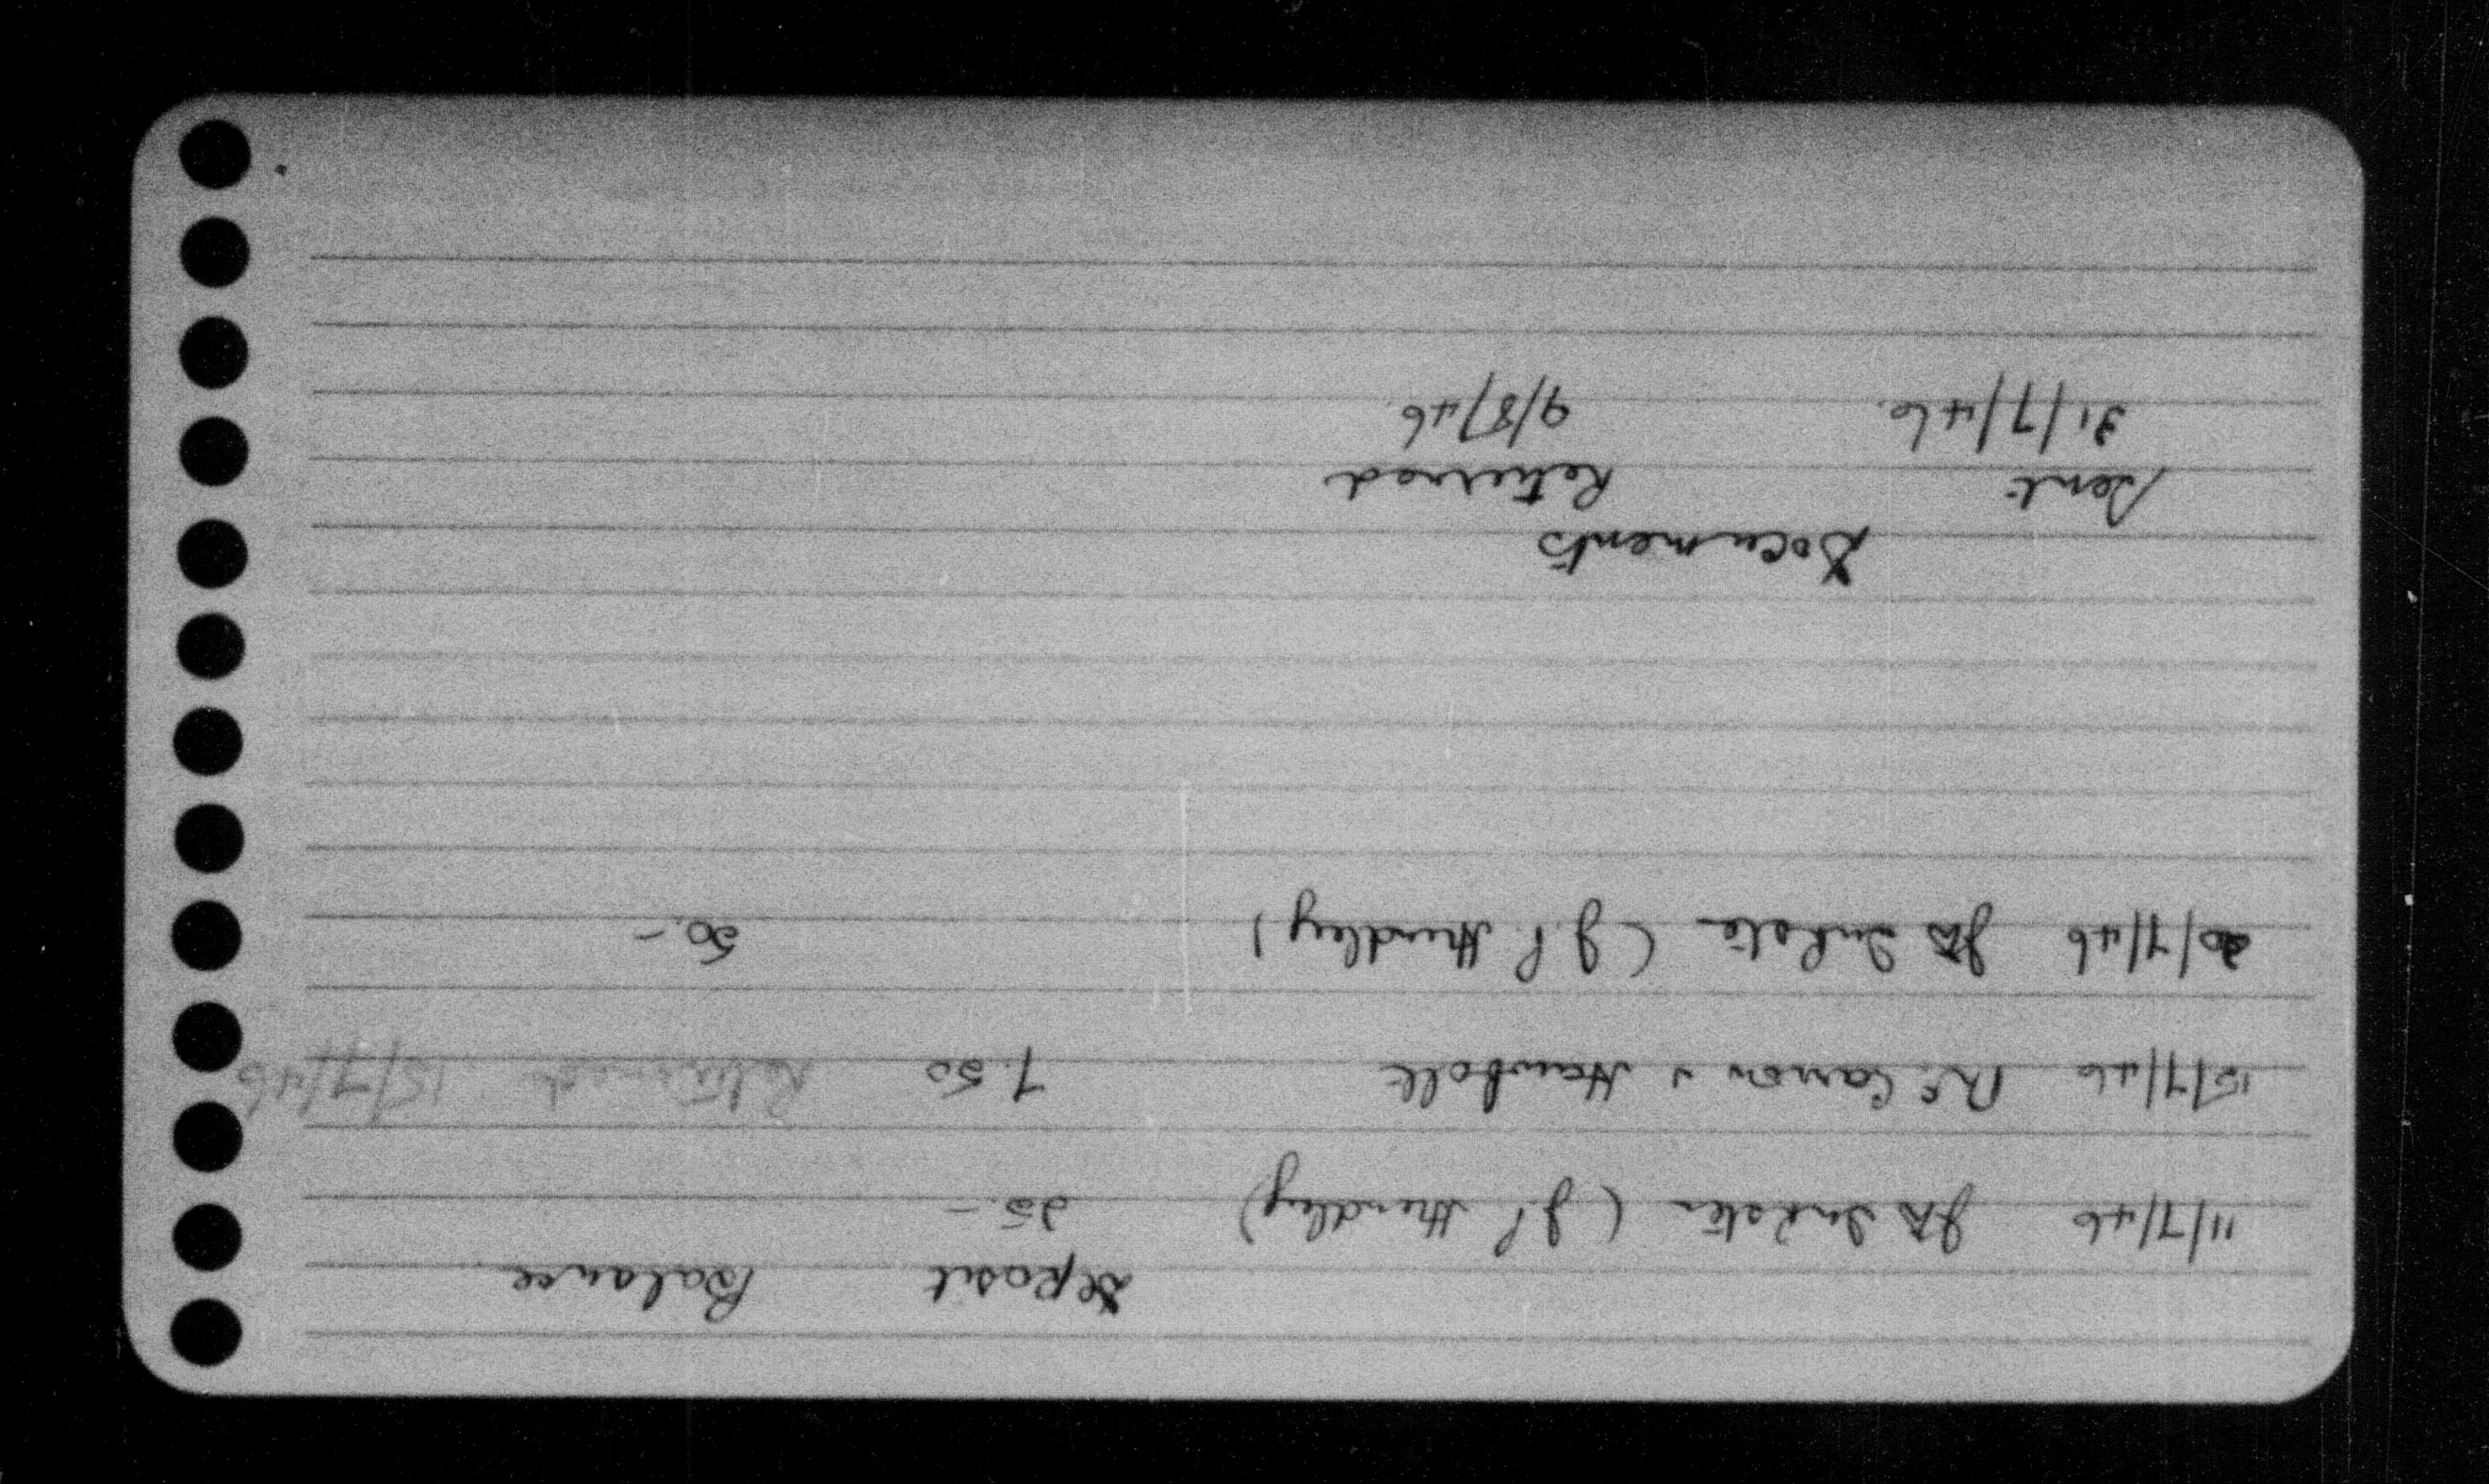 Deposit Balance
11/7/46 JA Inkster (J.P. Hundley) 25.–
15/7/46 Mc Carron & Hambolt 7.50 Returned 15/7/46
20/7/46 JA Inkster (J.P. Hundley) 50.–
Documents
Sent Returned
31/7/46. 9/8/46.